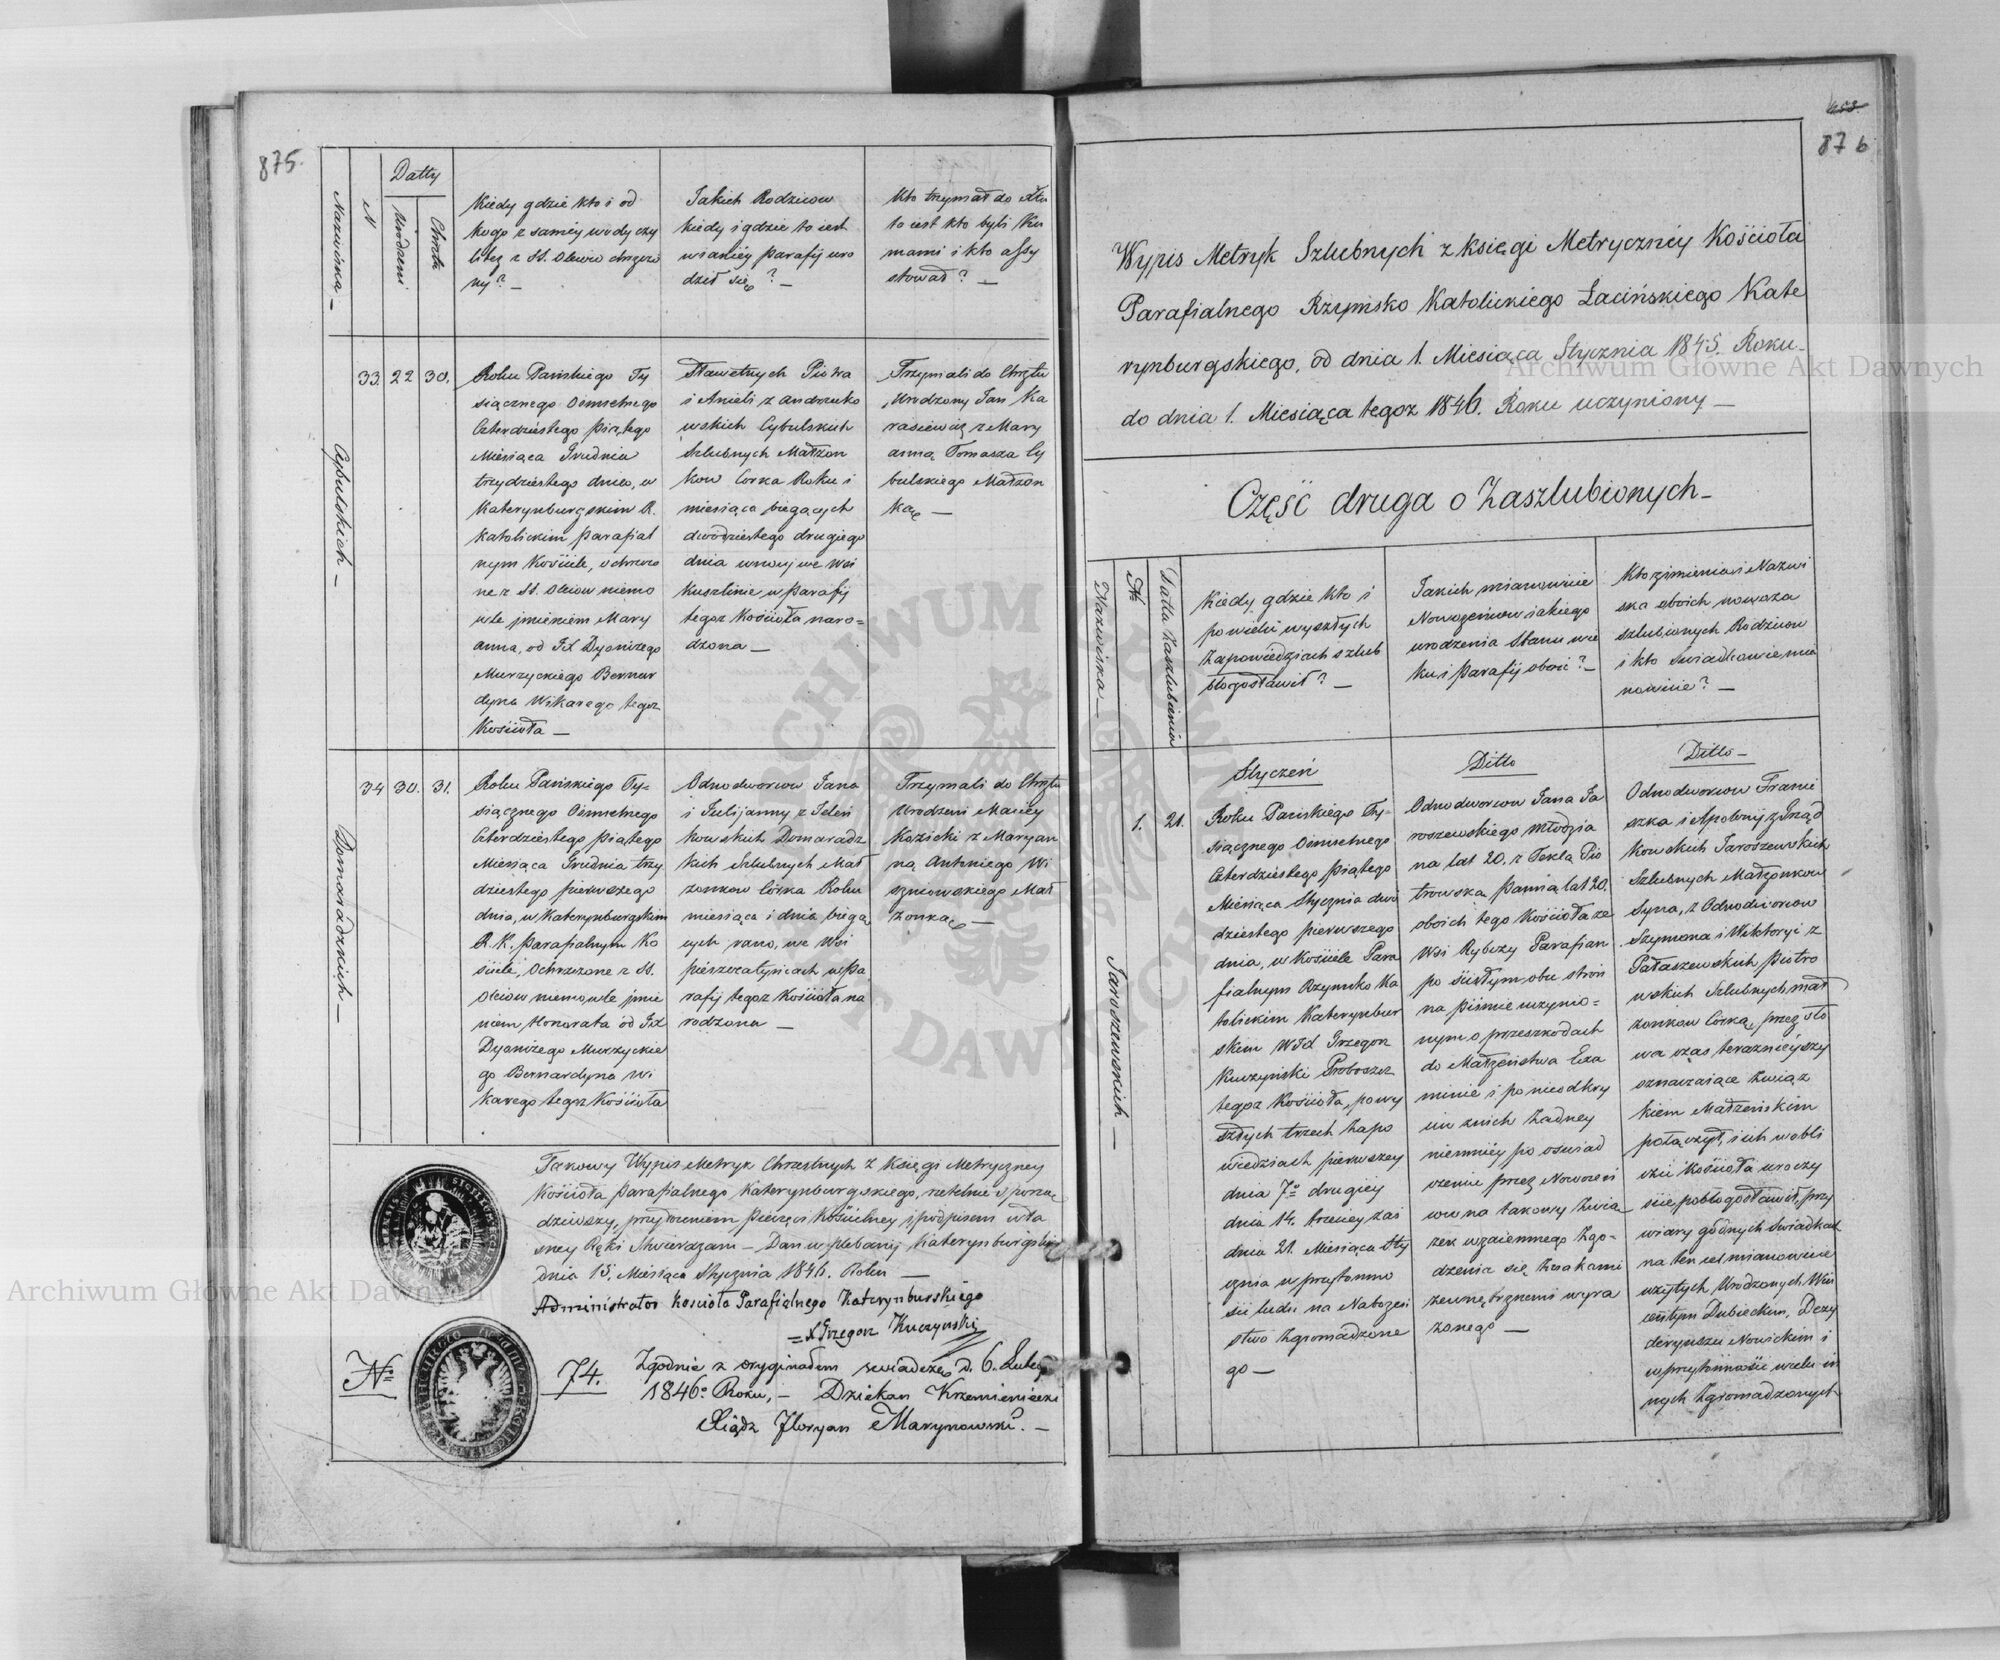 875.
Nazwiska –
N
Datty
Urodzeni
Chrztu
Kiedy gdzie kto i od
kogo z saméy wody czy
téż z SS. Oleiów chrzczo
ny? –
Jakich Rodziców
kiedy i gdzie to iest
w iakiéy Parafij uro
dził się? –
Kto trzymał do Xtu
to iest kto byli Ku
mami i kto assy
stował? –
Cybulskich –
33
22
30.
Roku Pańskiego Ty
siącznego Osmsetnego
Czterdziestego piątego
Miesiąca Grudnia
trzydziestego dnia, w
Katerynburgskim R.
Katolickim Parafial
nym Kościele, ochrzczo
ne z SS. Oleiów niemo
wle jmieniem Mary
anna, od JX Dyonizego
Murzyckiego Bernar
dyna Wikarego tegoż
Kościoła –
Sławetnych Piotra
i Anieli z Andrzeiko
wskich Cybulskich
Szlubnych Małżon
ków Córka Roku i
miesiąca biegących
dwódziestego drugiego
dnia we Wsi
Kuszlinie w Parafij
tegoż Kościoła naro–
dzona –
Trzymali do Chrztu
Urodzony Jan Ka
rasiewicz z Mary
anną Tomasza Cy
bulskiego Małżon
ką –
Domaradzkich –
34
30.
31.
Roku Pańskiego Ty–
siącznego Osmsetnego
Czterdziestego Piątego
Miesiąca Grudnia trzy
dziestego pierwszego
dnia, w Katerynburgskim
R. K. Parafialnym Ko
ściele, Ochrzczone z SS.
Oleiów niemowle jmie
niem Honorata od JX
Dyonizego Murzyckie
go Bernardyna Wi
karego tegoż Kościoła
Odnodworców Jana
i Julijanny z Zelen
kowskich Domaradz
kich Szlubnych Mał
żonków Córka Roku
miesiąca i dnia biegą
cych rano, we Wsi
w Pa
rafij tegoż Kościoła na
rodzona –
Trzymali do Chrztu
Urodzeni Maciey
Kozicki z Maryan
ną Antoniego Wi
szniowskiego Mał
żonką –
Takowy Wypis Metryk Chrzestnych z Księgi Metryczney
Kościoła Parafialnego Katerynburgskiego, rzetelnie sporzą
dziwszy, przyłożeniem Pieczęci Kościelney i podpisem wła
sney Ręki Stwierdzam – Dan w plebanij Katerynburgskiey
dnia 15. Miesiąca Stycznia 1846. Roku –
Administrator Kościoła Parafialnego Katerynburskiego
X Grzegorz Kuczyński
№
74.
Zgodnie z oryginałem swiadczę d. 6. Lutego
1846º Roku, – Dziekan Krzemieniecki
Xiądz Floryan Marynowski. –
876
Wypis Metryk Szlubnych z Księgi Metrycznéy Kościoła
Parafialnego Rzymsko Katolickiego Łacińskiego Kate
rynburgskiego, od dnia 1. Miesiąca Stycznia 1845. Roku
do dnia 1. Miesiąca tegoz 1846. Roku uczyniony –
Część druga o Zaszlubionych –
Nazwiska –
№
Datta Zaszlubienia
Kiedy gdzie kto i
po wielu wyszłych
Zapowiedziach szlub
błogosławił? –
Jakich mianowicie
Nowożeńców iakiego
urodzenia Stanu wie
ku i Parafij oboie? –
Kto z imienia i Nazwi
ska oboich nowoza
szlubionych Rodziców
i kto Swiadkowie mia
nowicie? –
Jaroszewskich –
1.
21.
Styczeń
Roku Pańskiego Ty–
siącznego Osmsetnego
Czterdziestego Piątego
Miesiąca Stycznia dwó
dziestego pierwszego
dnia, w Kościele Para
fialnym Rzymsko Ka
tolickim Katerynbur
skim WJX Grzegorz
Kuczyński Proboszcz
tegoż Kościoła, po wy
szłych trzech Zapo
wiedziach pierwszey
dnia 7º drugiéy
dnia 14. trzeciey zaś
dnia 21. Miesiąca Sty
cznia w przytomno
ści ludu na Nabożeń
stwo Zgromadzone
go –
Ditto
Odnodworców Jana Ja
roszewskiego Młodzia
na lat 20. z Teklą Pio
trowską Panną lat 20.
oboich tego Kościoła ze
Wsi Rybczy Parafian
po ścisłym obu stron
na piśmie uczynio–
nym o przeszkodach
do Małżeństwa Exa
minie i po nieodkry
ciu z nich Żadney
niemniéy po oswiad
czeniu przez Nowożeń
ców na takowy Zwią
zek wzaiemnego Zgo–
dzenia się Znakami
zewnętrznemi wyra
żonego –
Ditto –
Odnodworców Franci
szka i Apolonij z Gnąd
kowskich Jaroszewskich
Szlubnych Małżonków
Syna, z Odnodworców
Szymona i Wiktoryi z
Pałaszewskich Piotro
wskich Szlubnych mał
żonków Córką, przez sło
wa czas teraznieyszy
oznaczaiące Związ
kiem Małżeńskim
połączył, i ich w obli
czu Kościoła uroczy
ście pobłogosławił, przy
wiary godnych Swiadkach
na ten cel mianowicie
użytych Urodzonych Win
centym Dubieckim, Dezy
deryuszu Nowickim i
w przytomności wielu in
nych Zgromadzonych
Archiwum Główne Akt Dawnych
Archiwum Główne Akt Dawnych